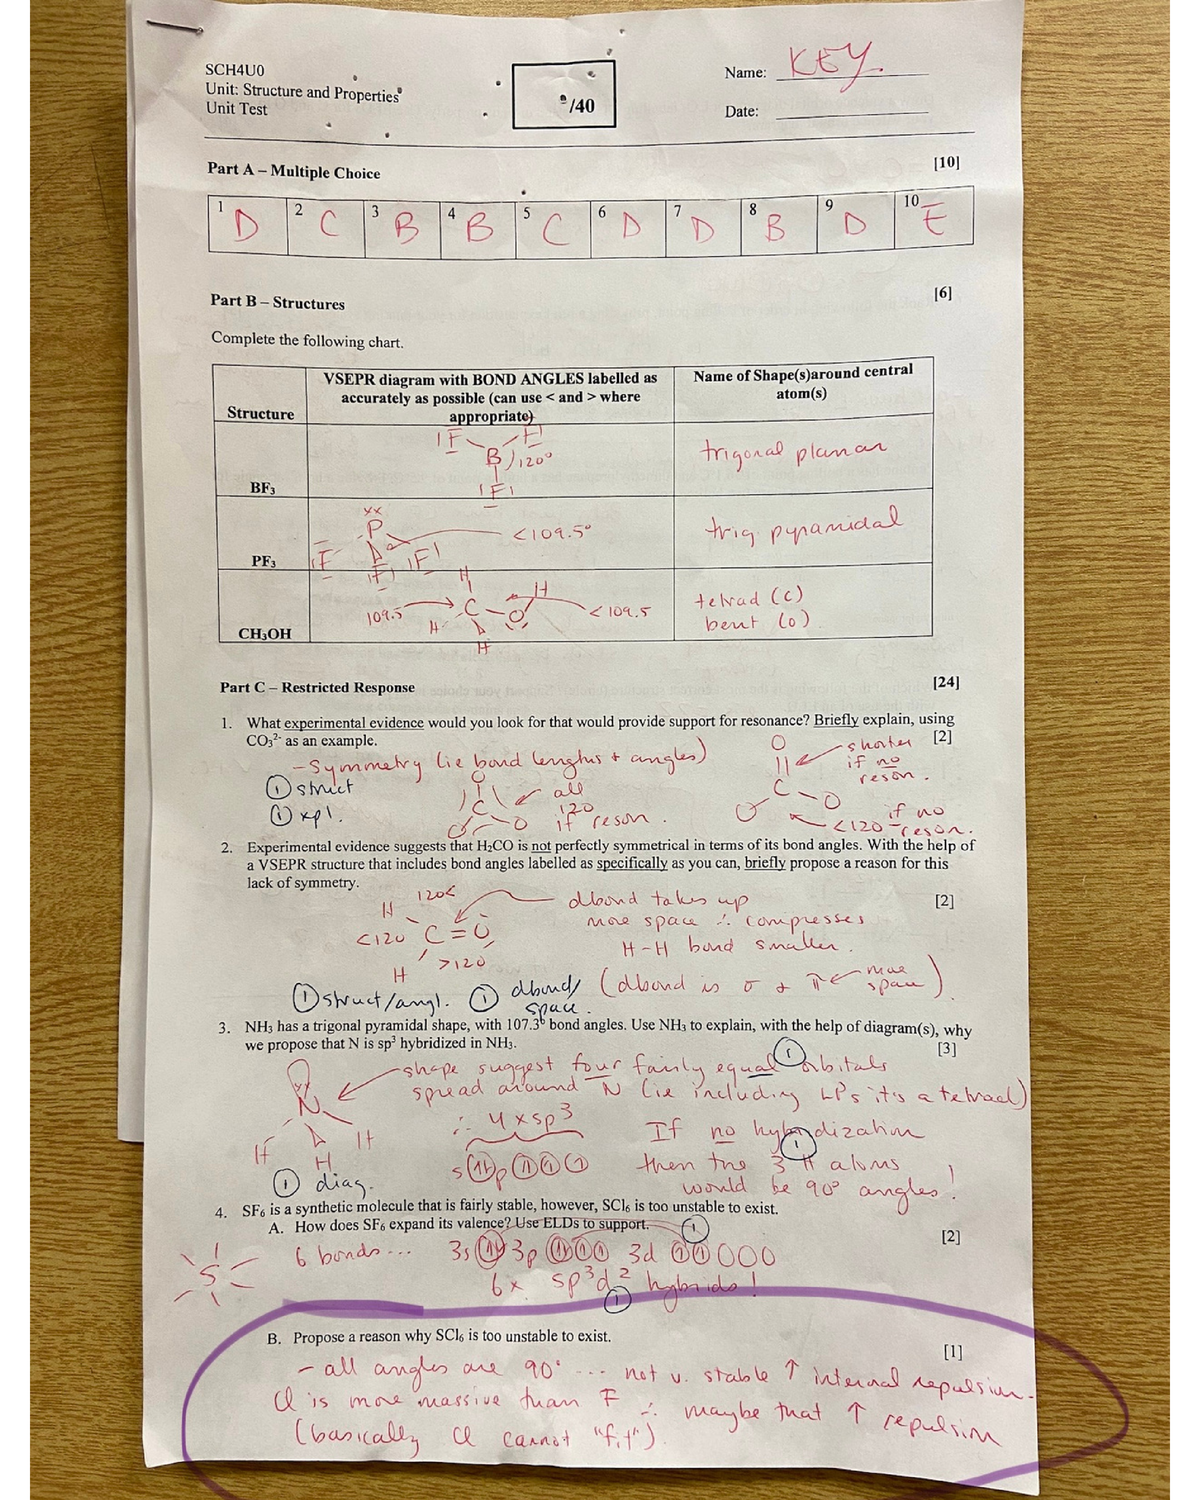 SCH4U0
Unit: Structure and Properties
Unit Test
/40
Name: KEY.
Date:
Part A – Multiple Choice [10]
1 D 2 C 3 B 4 B 5 C 6 D 7 D 8 B 9 D 10 E
Part B – Structures [6]
Complete the following chart.
Structure
VSEPR diagram with BOND ANGLES labelled as
accurately as possible (can use < and > where
appropriate)
Name of Shape(s)around central
atom(s)
BF3
F F
B 120°
F
trigonal planar
PF3
xx
P
F F F
<109.5°
trig pyramidal
CH3OH
H
H
C O
109.5
<109.5
H
H
tetrad (C)
bent (O)
Part C – Restricted Response [24]
1. What experimental evidence would you look for that would provide support for resonance? Briefly explain, using
CO3²⁻ as an example. [2]
- Symmetry (ie bond lengths + angles)
① struct
① xpl.
O
C
O O
all
120
if reson.
O
C O
O
shorter
if no
reson.
if no
<120 reson.
2. Experimental evidence suggests that H2CO is not perfectly symmetrical in terms of its bond angles. With the help of
a VSEPR structure that includes bond angles labelled as specifically as you can, briefly propose a reason for this
lack of symmetry. [2]
120<
H
<120 C=O
H >120
dbond takes up
more space ∴ compresses
H-H bond smaller.
(dbond is σ + π ← more space)
① struct/angl. ① dbond/
space.
3. NH3 has a trigonal pyramidal shape, with 107.3° bond angles. Use NH3 to explain, with the help of diagram(s), why
we propose that N is sp³ hybridized in NH3. [3]
N
H H H
① diag.
- shape suggest four fairly equal ① orbitals
spread around N (ie including LP's it's a tetrad)
∴ 4 x sp3
s p
If no hybridization
① then the 3 H atoms
would be 90° angles!
4. SF6 is a synthetic molecule that is fairly stable, however, SCl6 is too unstable to exist.
A. How does SF6 expand its valence? Use ELDs to support. ① [2]
S
6 bonds... 3s 3p 3d
6x sp³d² hybrids!
①
B. Propose a reason why SCl6 is too unstable to exist. [1]
- all angles are 90° ... not v. stable ↑ internal repulsion.
Cl is more massive than F ∴ maybe that ↑ repulsion
(basically Cl cannot "fit")